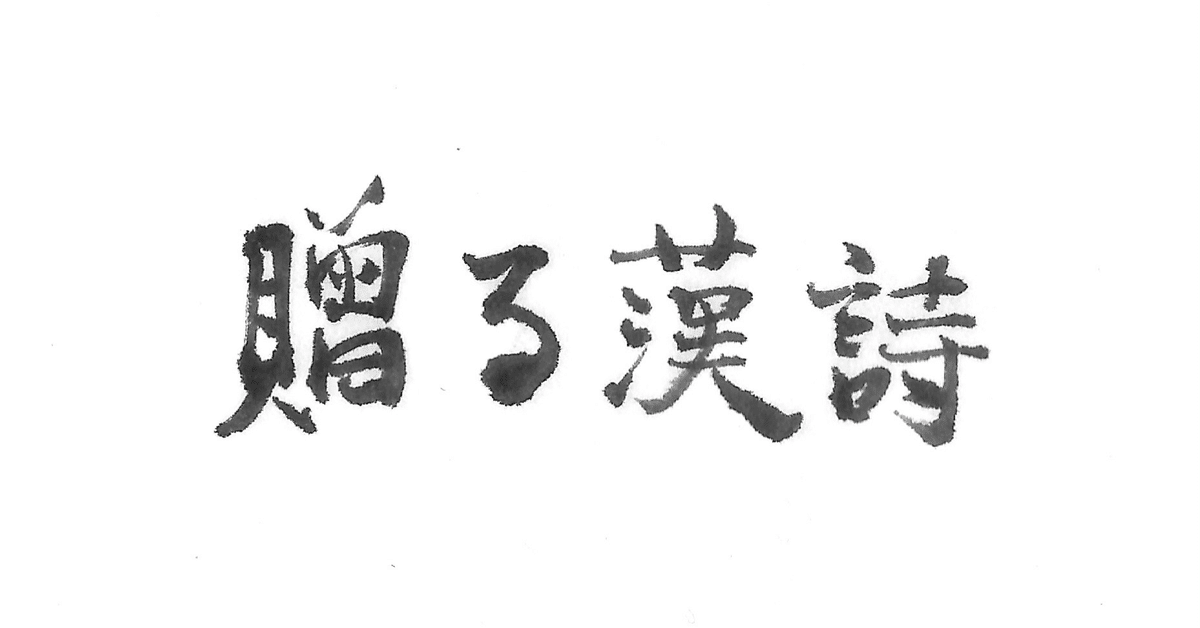 贈る漢詩